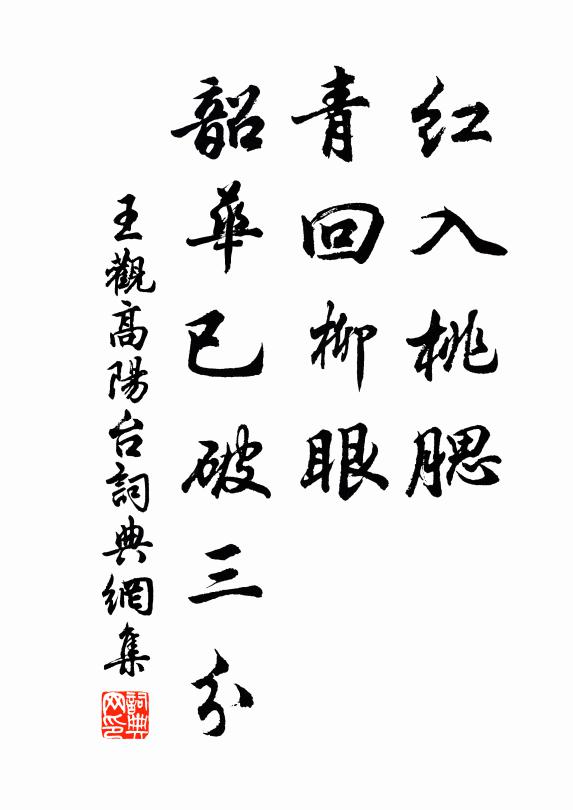 红入桃腮
青回柳眼
韶華已破三分
王觀高陽台詞典網集
詞典网印